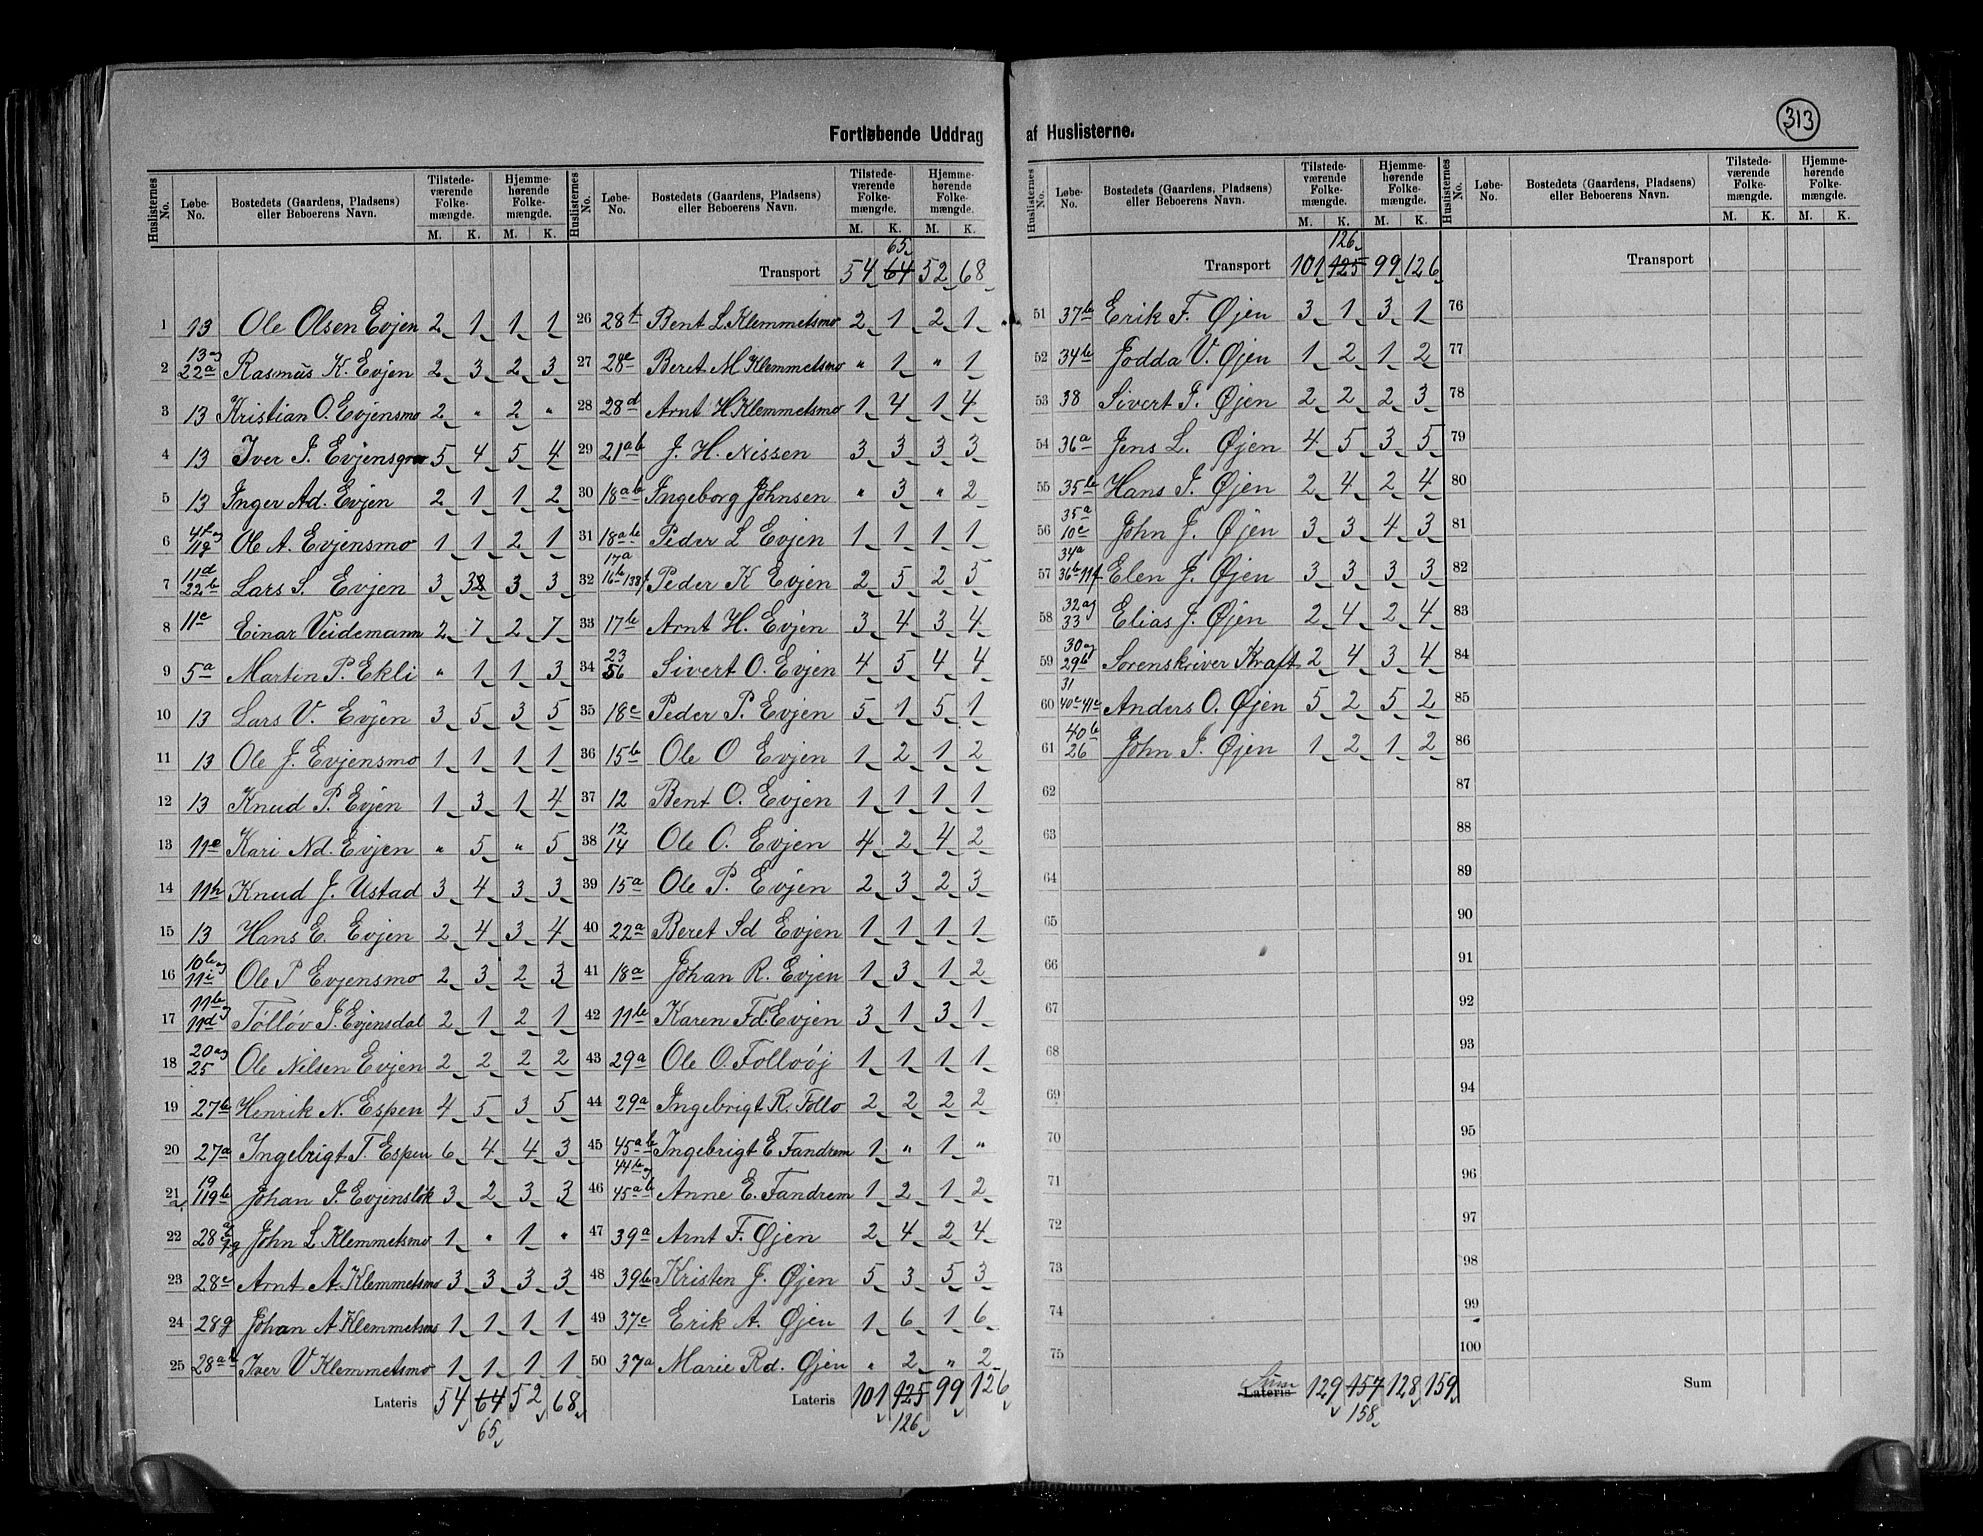 313
Fortløbende Uddrag af Huslisterne.
Huslisternes No. Løbe-No. Bostedets (Gaardens, Pladsens) eller Beboerens Navn. Tilstedeværende Folkemængde. M. K. Hjemmehørende Folkemængde. M. K.
1 13 Ole Olsen Evjen 2 1 1 1
2 13 og 22a Rasmus K. Evjen 2 3 2 3
3 13 Kristian O. Evjensmo 2 " 2 "
4 13 Iver J. Evjensgrav 5 4 5 4
5 13 Inger Ad. Evjen 2 1 1 2
6 11g Ole A. Evjensmo 1 1 2 1
7 11d 22b Lars S. Evjen 3 3 3 3
8 11c Einar Veidemann 2 7 2 7
9 5a Martin P. Ekli " 1 1 3
10 13 Lars V. Evjen 3 5 3 5
11 13 Ole J. Evjensmo 1 1 1 1
12 13 Knud P. Evjen 1 3 1 4
13 11e Kari Nd. Evjen " 5 " 5
14 11h Knud J. Ustad 3 4 3 3
15 13 Hans E. Evjen 2 4 3 4
16 10b og 11i Ole P Evjensmo 2 3 2 3
17 11b og 11d Tolløv J. Evjensdal 2 1 2 1
18 20 og 25 Ole Nilsen Evjen 2 2 2 2
19 27b Henrik N. Espen 4 5 3 5
20 27a Ingebrigt T. Espen 6 4 4 3
21 19 119b Johan J. Evjensløk 3 2 3 3
22 28 Johan L Klemmetsmo 1 " 1 "
23 28c Arnt A. Klemmetsmo 3 3 3 3
24 28g Johan A Klemmetsmo 1 1 1 1
25 28ab Iver V Klemmetsmo 1 1 1 1
Lateris 54 64 52 68
65
Huslisternes No. Løbe-No. Bostedets (Gaardens, Pladsens) eller Beboerens Navn. Tilstedeværende Folkemængde. M. K. Hjemmehørende Folkemængde. M. K.
65
Transport 54 64 52 68
26 28f Bent L. Klemmetsmo 2 1 2 1
27 28e Beret M Klemmetsmo " 1 " 1
28 28d Arnt H Klemmetsmo 1 4 1 4
29 21ab J. H. Nissen 3 3 3 3
30 18ab Ingeborg Johnsen " 3 " 2
31 18ab Peder L Evjen 1 1 1 1
32 17a 16b 138f Peder K Evjen 2 5 2 5
33 17b Arnt H. Evjen 3 4 3 4
34 23 56 Sivert O. Evjen 4 5 4 4
35 18c Peder P. Evjen 5 1 5 1
36 15b Ole O Evjen 1 2 1 2
37 12 Bent O. Evjen 1 1 1 1
38 12 14 Ole O. Evjen 4 2 4 2
39 15a Ole P. Evjen 2 3 2 3
40 22a Beret Sd Evjen 1 1 1 1
41 18a Johan R. Evjen 1 3 1 2
42 11b Karen Fd. Evjen 3 1 3 1
43 29a Ole O. Follvøj 1 1 1 1
44 29a Ingebrigt R. Follo 2 2 2 2
45 45ab Ingebrigt E Fandrem 1 " 1 "
46 44b og 45ab Anne E. Fandrem 1 2 1 2
47 39a Arnt F. Øjen 2 4 2 4
48 39b Kristen J. Øjen 5 3 5 3
49 37c Erik A. Øjen 1 6 1 6
50 37a Marie Rd. Øjen " 2 " 2
Lateris 101 125 99 126
126
Huslisternes No. Løbe-No. Bostedets (Gaardens, Pladsens) eller Beboerens Navn. Tilstedeværende Folkemængde. M. K. Hjemmehørende Folkemængde. M. K.
126
Transport 101 125 99 126
51 37b Erik F. Øjen 3 1 3 1
52 34b Jodda V. Øjen 1 2 1 2
53 38 Sivert P. Øjen 2 2 2 3
54 36a Jens L. Øjen 4 5 3 5
55 35b Hans J. Øjen 2 4 2 4
56 35a 10c John J. Øjen 3 3 4 3
57 34a 36b 11f Elen J. Øjen 3 3 3 3
58 32 og 33 Elias J. Øjen 2 4 2 4
59 30 og 29b Sorenskriver Kraft 2 4 3 4
60 31 40c 41c Anders O. Øjen 5 2 5 2
61 40b 26 John J. Øjen 1 2 1 2
62
63
64
65
66
67
68
69
70
71
72
73
74
75
Lateris Sum 129 157 128 159
158
Huslisternes No. Løbe-No. Bostedets (Gaardens, Pladsens) eller Beboerens Navn. Tilstedeværende Folkemængde. M. K. Hjemmehørende Folkemængde. M. K.
Transport
76
77
78
79
80
81
82
83
84
85
86
87
88
89
90
91
92
93
94
95
96
97
98
99
100
Sum